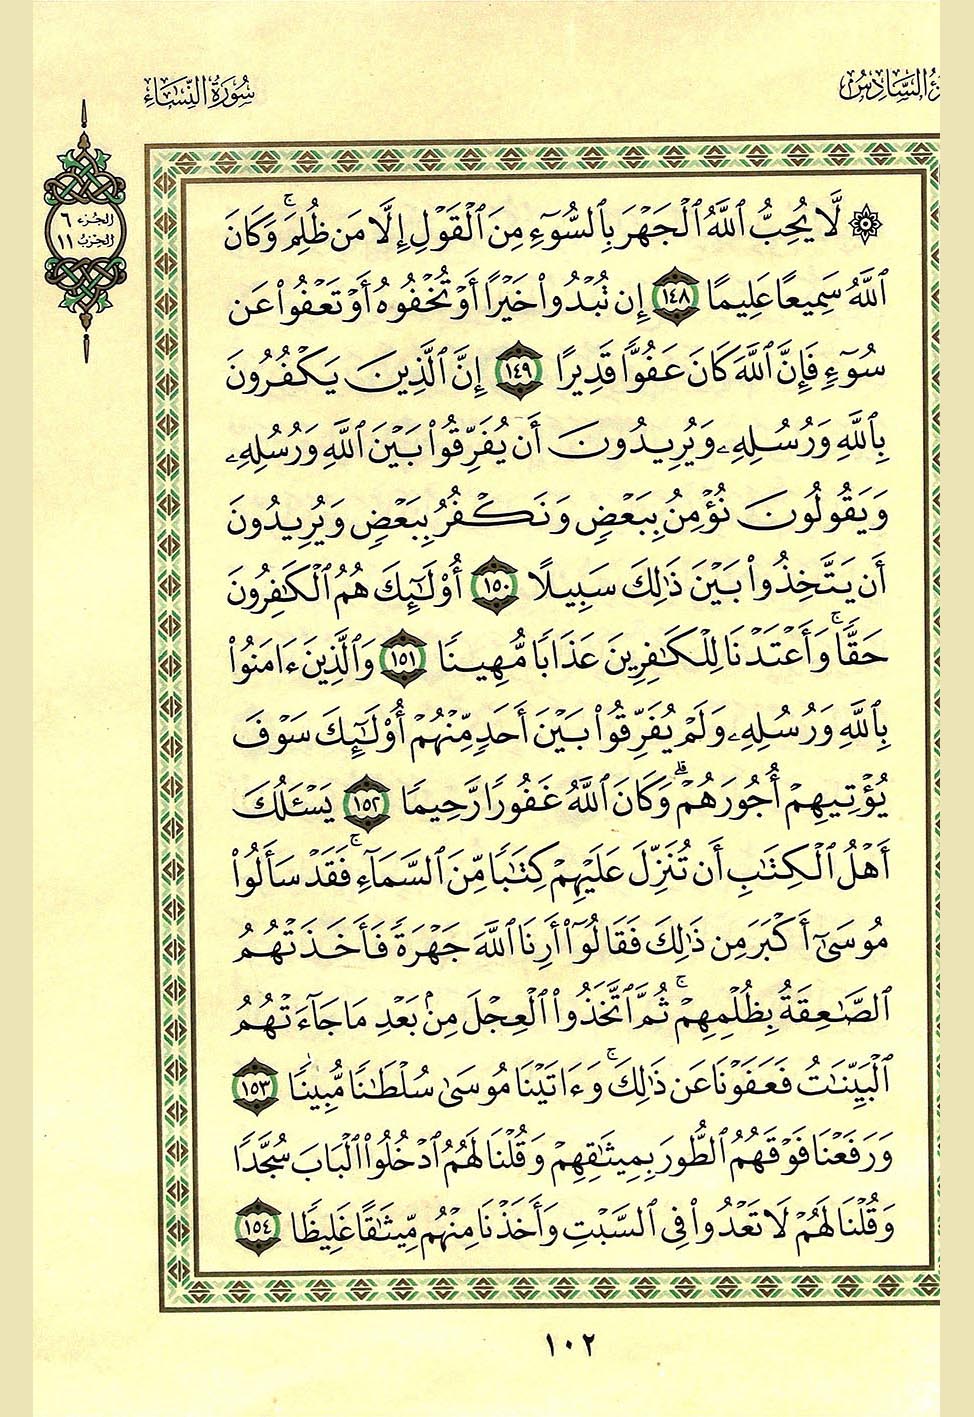 سُورَةُ النِّسَاءِ
السَّادِسُ
الجزء ٦
الحزب ١١
۞ لَّا يُحِبُّ ٱللَّهُ ٱلْجَهْرَ بِٱلسُّوٓءِ مِنَ ٱلْقَوْلِ إِلَّا مَن ظُلِمَ ۚ وَكَانَ
ٱللَّهُ سَمِيعًا عَلِيمًا ١٤٨ إِن تُبْدُوا۟ خَيْرًا أَوْ تُخْفُوهُ أَوْ تَعْفُوا۟ عَن
سُوٓءٍ فَإِنَّ ٱللَّهَ كَانَ عَفُوًّا قَدِيرًا ١٤٩ إِنَّ ٱلَّذِينَ يَكْفُرُونَ
بِٱللَّهِ وَرُسُلِهِۦ وَيُرِيدُونَ أَن يُفَرِّقُوا۟ بَيْنَ ٱللَّهِ وَرُسُلِهِۦ
وَيَقُولُونَ نُؤْمِنُ بِبَعْضٍ وَنَكْفُرُ بِبَعْضٍ وَيُرِيدُونَ
أَن يَتَّخِذُوا۟ بَيْنَ ذَٰلِكَ سَبِيلًا ١٥٠ أُو۟لَـٰٓئِكَ هُمُ ٱلْكَـٰفِرُونَ
حَقًّا ۚ وَأَعْتَدْنَا لِلْكَـٰفِرِينَ عَذَابًا مُّهِينًا ١٥١ وَٱلَّذِينَ ءَامَنُوا۟
بِٱللَّهِ وَرُسُلِهِۦ وَلَمْ يُفَرِّقُوا۟ بَيْنَ أَحَدٍ مِّنْهُمْ أُو۟لَـٰٓئِكَ سَوْفَ
يُؤْتِيهِمْ أُجُورَهُمْ ۗ وَكَانَ ٱللَّهُ غَفُورًا رَّحِيمًا ١٥٢ يَسْـَٔلُكَ
أَهْلُ ٱلْكِتَـٰبِ أَن تُنَزِّلَ عَلَيْهِمْ كِتَـٰبًا مِّنَ ٱلسَّمَآءِ ۚ فَقَدْ سَأَلُوا۟
مُوسَىٰٓ أَكْبَرَ مِن ذَٰلِكَ فَقَالُوٓا۟ أَرِنَا ٱللَّهَ جَهْرَةً فَأَخَذَتْهُمُ
ٱلصَّـٰعِقَةُ بِظُلْمِهِمْ ۚ ثُمَّ ٱتَّخَذُوا۟ ٱلْعِجْلَ مِنۢ بَعْدِ مَا جَآءَتْهُمُ
ٱلْبَيِّنَـٰتُ فَعَفَوْنَا عَن ذَٰلِكَ ۚ وَءَاتَيْنَا مُوسَىٰ سُلْطَـٰنًا مُّبِينًا ١٥٣
وَرَفَعْنَا فَوْقَهُمُ ٱلطُّورَ بِمِيثَـٰقِهِمْ وَقُلْنَا لَهُمُ ٱدْخُلُوا۟ ٱلْبَابَ سُجَّدًا
وَقُلْنَا لَهُمْ لَا تَعْدُوا۟ فِى ٱلسَّبْتِ وَأَخَذْنَا مِنْهُم مِّيثَـٰقًا غَلِيظًا ١٥٤
١٠٢